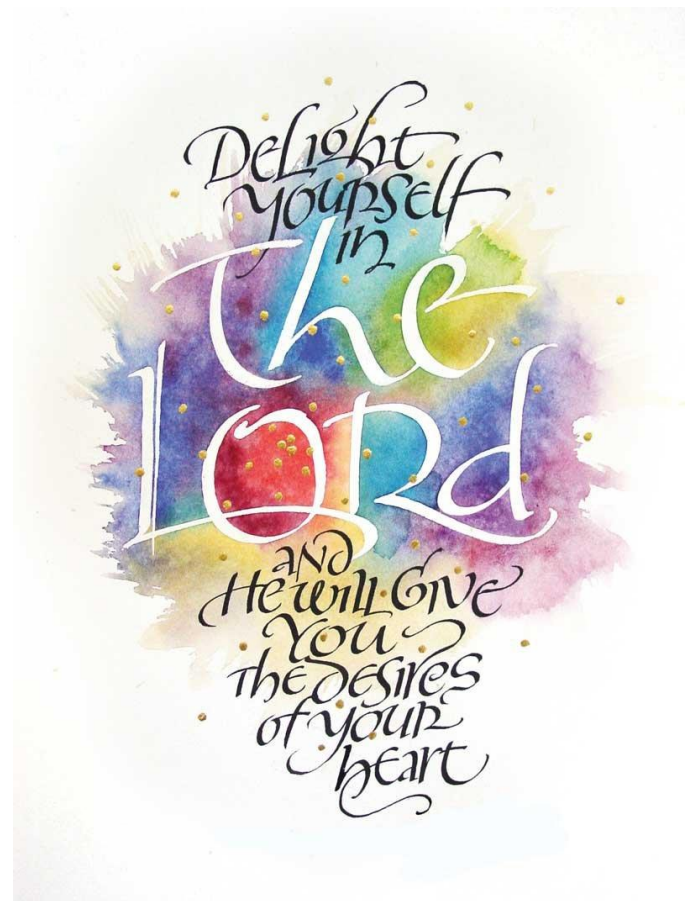 Delight
yourself
in
the
Lord
and
He will Give
You
The desires
of your
heart